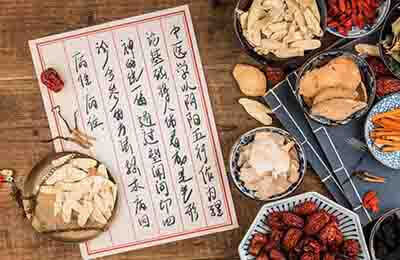 中医学以阴阳五行作为理
论基础将人体看成是气形
神的统一体通过望闻问切四
诊合参的方法探求病因
病性 病位